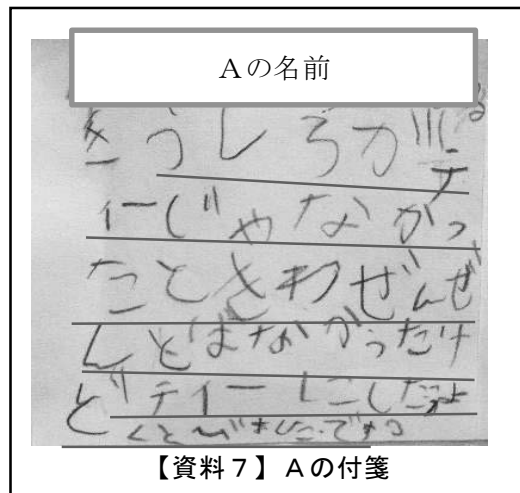 Aの名前
うしろがㇵテ
ィーじゃなかっ
たときわぜんぜ
んとばなかったけ
どティーにしたらよ
くとびました。です。
【資料7】Aの付箋